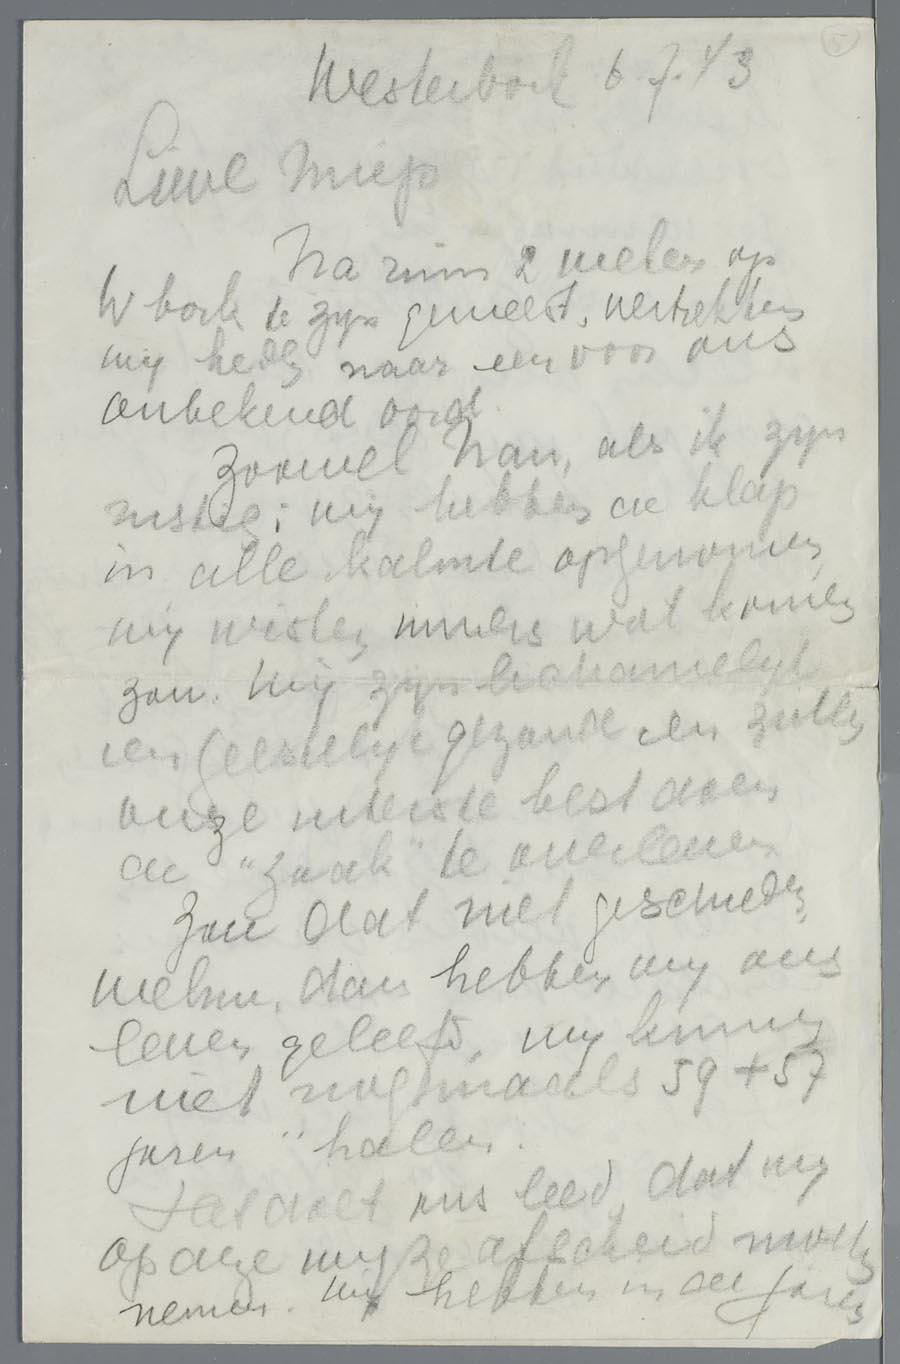 Westerbork 6.7.43
Lieve Miep
Na ruim 2 weken op
W bork te zijn geweest, vertrekken
wij heden naar een voor ons
onbekend oord.
Zoowel Nan, als ik zijn
rustig; wij hebben de klap
in alle kalmte opgenomen,
wij wisten immers wat komen
zou. Wij zijn lichamelijk
en geestelijk gezond en zullen
onze uiterste best doen
de "zaak" te overleven
Zou dat niet geschieden,
welnu, dan hebben wij ons
leven geleefd, wij kunnen
niet nogmaals 59 + 57
jaren "halen.
Het doet ons leed, dat wij
op deze wijze afscheid moeten
nemen. Wij hebben in de jaren